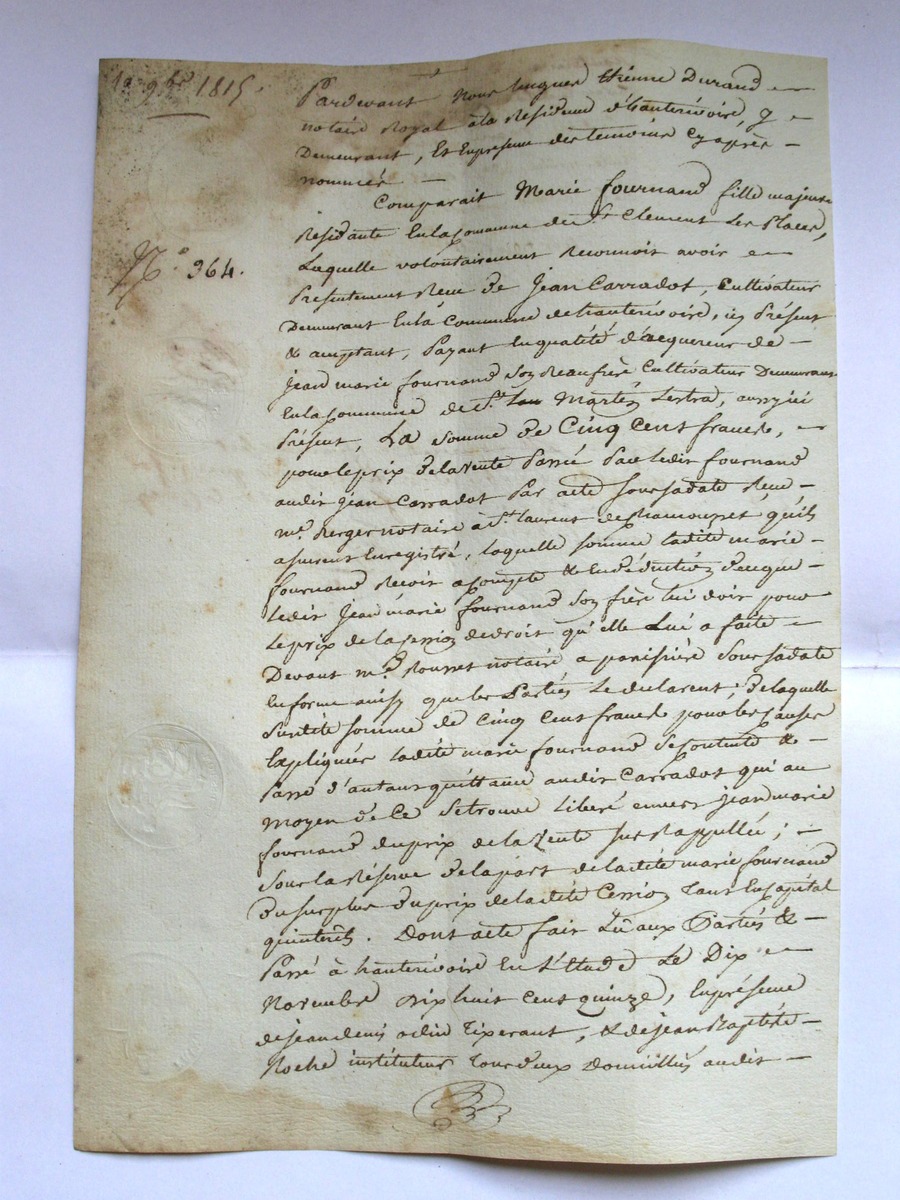 10 9bre 1815.
N.o 964.
Pardevant Nous Etienne Durand
notaire Royal à la Résidence d'hauterivoire, y
Demeurant, Et En présence des temoins Cy après
nommés
Comparait Marie fournand fille majeure
Residante En la Commune de St Clement Les Places,
Laquelle volontairement Reconnoit avoir
Présentement Recu de Jean Carradot, Cultivateur
Demeurant En la Commune de hauterivoire, icy Présent
& acceptant, Payant En qualité d'acquereur de
Jean marie fournand Son Beaufrère Cultivateur Demeurant
En la Commune de St Martin Lestra, aussy ici
Présent, La Somme de Cinq Cent francs,
pour le prix de la Vente Passée Par ledit fournand
audit Jean Carradot Par acte Sous Sa date Recu
me. Berger notaire à St. Laurent de Chamousset qu'ils
assurent Enregistré, laquelle Somme ladite marie
fournand Recoit acompte & En déduction de ce que
Ledit Jean marie fournand Son frère lui doit pour
Le prix de la Cession de droit qu'elle Lui a faite
Devant me. Rousset notaire a panissière Sous Sa date
En forme ainsy que les Parties Le declarent; de laquelle
Susdite Somme de Cinq Cent francs pour les Causes
Expliquées Ladite marie fournand Se Contente &
Passe d'autant quittance audit Carradot qui au
moyen de Ce Se trouve Libéré envers Jean marie
fournand du prix de la Vente Sus Rappellée;
Sous la Réserve de la part de ladite marie fournand
Du Surplus du prix de ladite Cession Tant En Capital
qu'interêts. Dont acte fait Lu aux Parties &
Passé à hauterivoire En L'Etude Le Dix
Novembre dix huit cent quinze, En présence
de Jean denis odin Tixerant, & de Jean Baptiste
Roche instituteur Tous deux Domiciliés audit